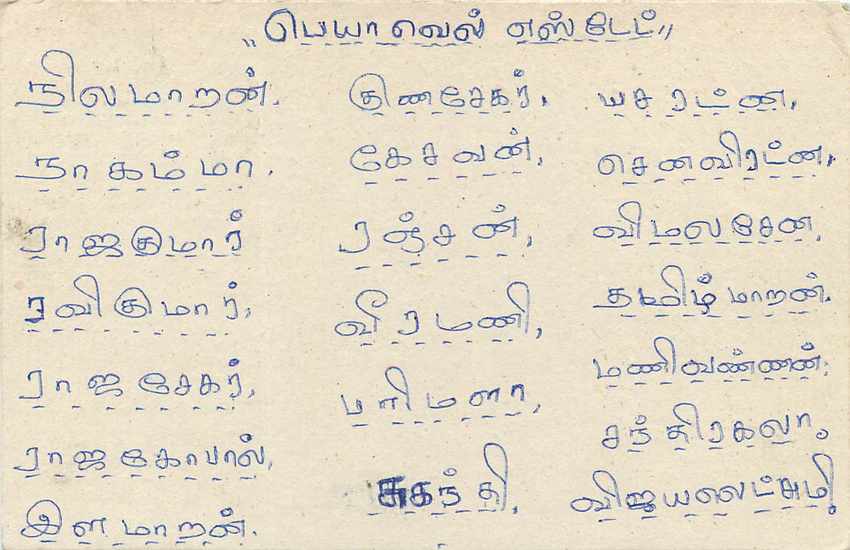 "பெயாவெல் எஸ்டேட்"
நிலமாறன்.
நாகம்மா.
ராஜகுமார்
ரவிகுமார்,
ராஜசேகர்,
ராஜகோபால்,
இளமாறன்.
குணசேகர்,
கேசவன்,
ரஞ்சன்,
வீரமணி,
பரிமளா,
சுகந்தி,
யசரட்ண,
செனவிரட்ண,
விமலசேன,
தமிழ்மாறன்.
மணிவண்ணன்,
சந்திரகலா,
விஜயலெட்சுமி,